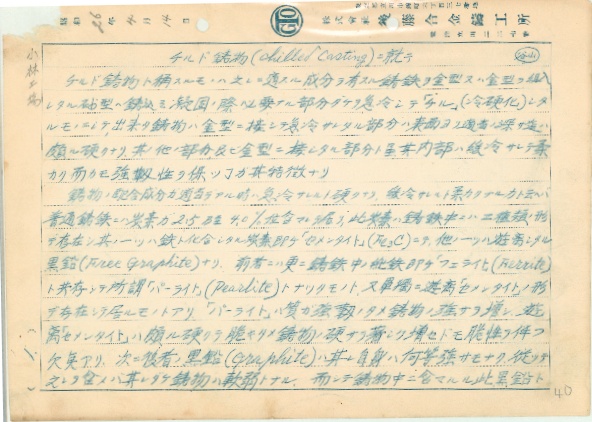 昭和 26年 4月 14日
株式會社 後藤合金鑄工所
小林工場
チルド鋳物(chilled casting)ニ就テ
チルド鋳物ト稱スルモノハ之レニ適スル成分ヲ有スル鋳鉄ヲ金型又ハ金型ヲ
シタル砂型ヘ鋳込ミ凝固ノ際必要ナル部分ダケヲ急冷シテ「チル」(冷硬化)シタ
ルモノニシテ出来タ鋳物ハ金型ニ接シテ急冷サレタル部分ハ表面ヨリ適当ノ深サ迄ハ
頗ル硬クナリ其ノ他ノ部分及ビ金型ニ接シタル部分ト雖其内部ハ緩冷サレテ柔
カク而カモ強靱性ヲ保ツノガ其特徴ナリ
鋳物ノ配合成分ガ適当デアル時ハ急冷サレルト硬クナリ、緩冷サレルト柔カクナルカト云ヘバ
普通鋳鉄ニハ炭素ガ2.5乃至4.0%位含ンデ居リ此炭素ハ鋳鉄中ニハ二種類ノ形
デ存在シ其ノ一ツハ鉄ト化合シタル炭素即チ「セメンタイト」(Fe3C)ニテ、他ノ一ツハ遊離シタル
黒鉛(Free Graphite)ナリ、前者ハ更ニ鋳鉄中ノ純鉄即チ「フェライト」(Ferrite)
ト共存シテ所謂「パーライト」(Pearlite)トナリタルモノト、又單獨ニ遊離「セメンタイト」ノ形
デ存在シテ居ルモノトアリ「パーライト」ハ質ガ強靱ノタメ鋳物ノ強サヲ増シ、遊
離「セメンタイト」ハ頗ル硬クテ脆キタメ鋳物ノ硬サヲ著シク増セドモ脆性ヲ伴フ
欠奌アリ、次ニ後者ノ黒鉛(Graphite)ハ其レ自身ハ何等強サモナク、従ツテ
之レヲ含メバ其レダケ鋳物ハ軟弱トナル、而シテ鋳物中ニ含マルル此黒鉛ト
40